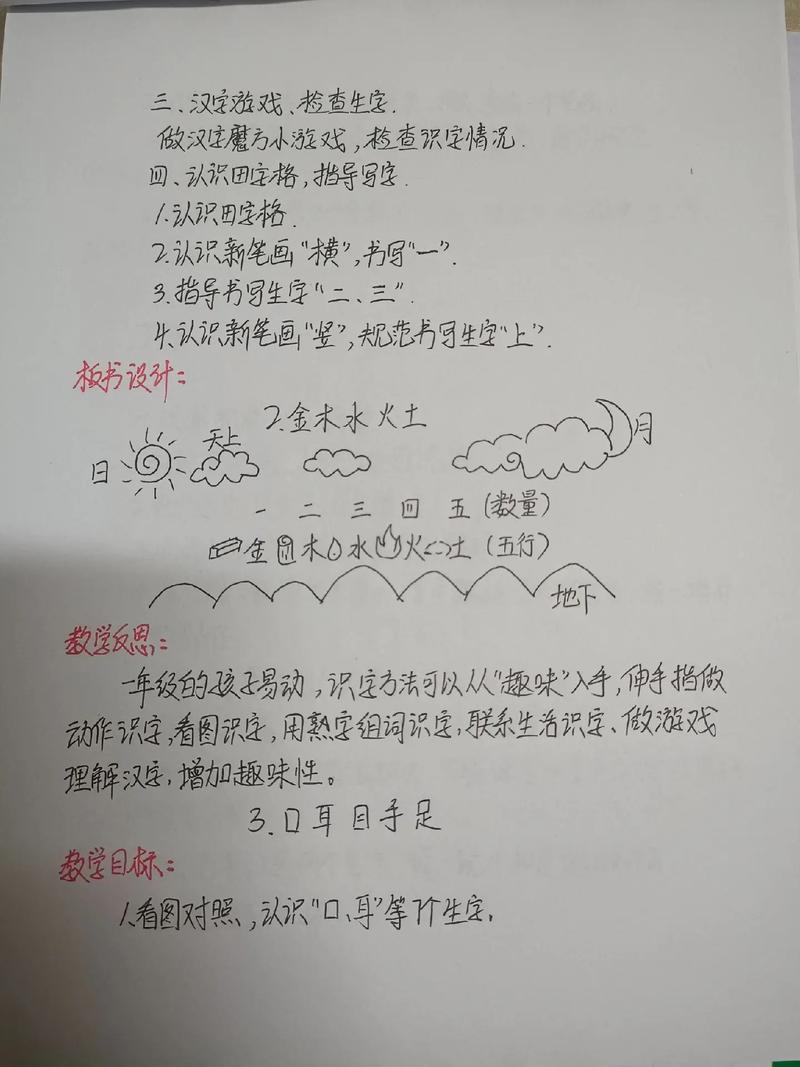 三、汉字游戏、检查生字.
做汉字魔方小游戏,检查识字情况.
四、认识田字格,指导写字.
1.认识田字格.
2.认识新笔画"横",书写"一".
3.指导书写生字"二、三".
4.认识新笔画"竖",规范书写生字"上".
板书设计:
2.金木水火土
日 天上 月
一 二 三 四 五 (数量)
金 木 水 火 土 (五行)
地下
教学反思:
一年级的孩子易动,识字方法可以从"趣味"入手,伸手指做
动作识字,看图识字,用熟字组词识字,联系生活识字、做游戏
理解汉字,增加趣味性。
3.口耳目手足
教学目标:
1.看图对照,认识"口、耳"等7个生字.